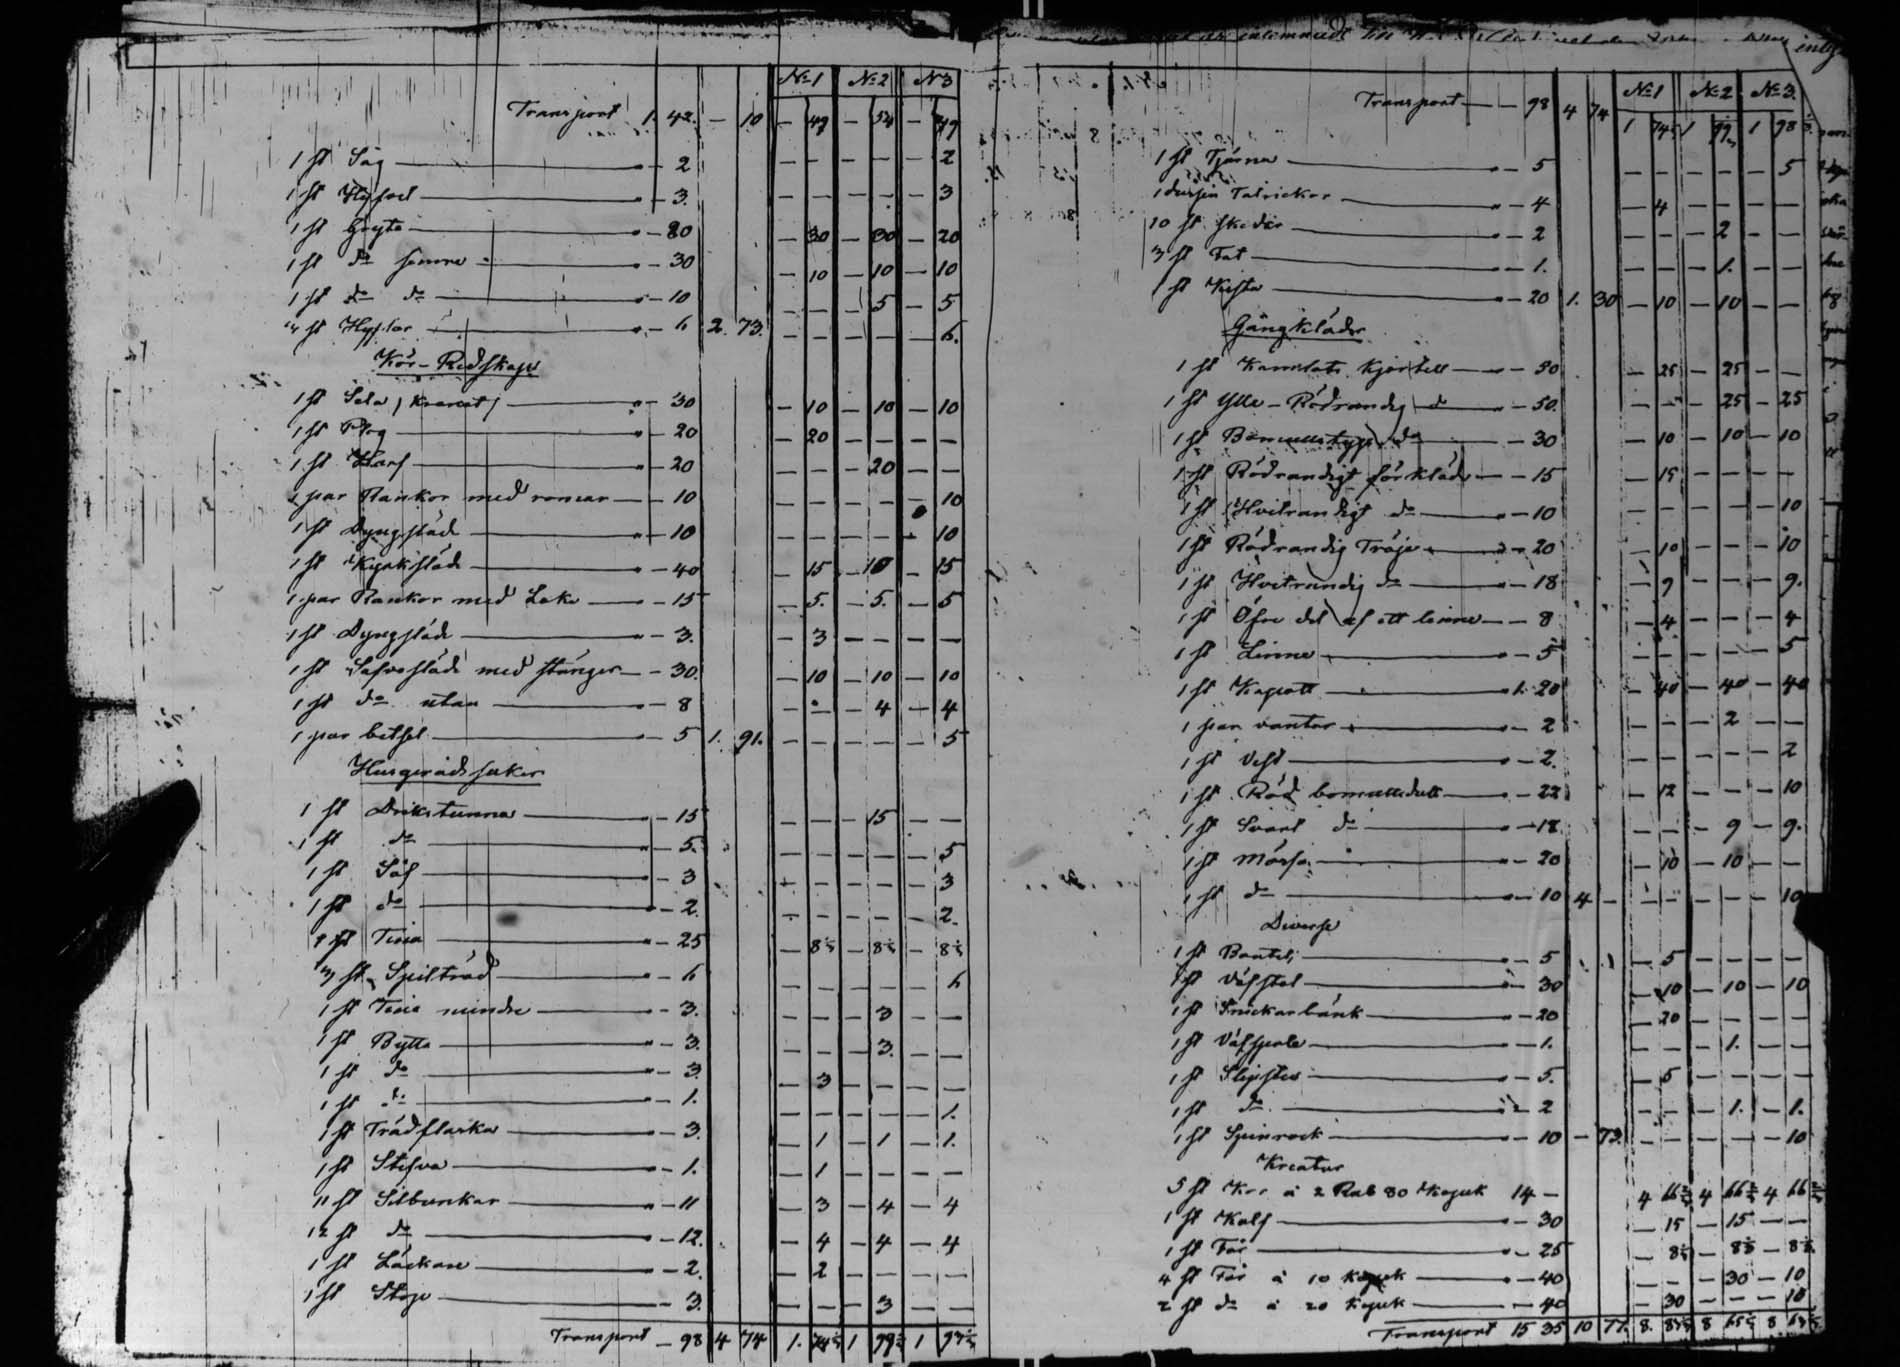 №1 №2 №3
Transport 1. 42. — 10 — 49 — 54 — 49
1 st Såg — 2 — — — — — 2
1 st Hyfvel — 3. — — — — — 3
1 st Gryta — 80 — 30 — 30 — 20
1 st do sämre — 30 — 10 — 10 — 10
1 st do do — 10 — — — 5 — 5
st — 6 2. 73. — — — — — 6.
Kör-Redskap
1 st Sela — 30 — 10 — 10 — 10
1 st Plog — 20 — 20 — — — —
1 st Harf — 20 — — — 20 — —
1 par Rankor med — 10 — — — — — 10
1 st Dyngsläde — 10 — — — — — 10
1 st Kyrksläde — 40 — 15 — 10 — 15
1 par Rankor med — 15 — 5. — 5. — 5
1 st Dyngsläde — 3. — 3 — — — —
1 st släde med stänger — 30. — 10 — 10 — 10
1 st do utan — 8 — — — 4 — 4
1 par betsel — 5 1. 91. — — — — — 5
Husgeråds saker
1 st Drickstunna — 15 — — — 15 — —
1 st do — 5. — — — — — 5
1 st Såf — 3 — — — — — 3
1 st do — 2. — — — — — 2.
1 st Tina — 25 — 8⅓ — 8⅓ — 8⅓
3 st — 6 — — — — — 6
1 st Tina mindre — 3. — — — 3 — —
1 st Bytta — 3. — — — 3. — —
1 st do — 3 — 3 — — — —
1 st do — 1. — — — — — 1.
1 st Trädflaska — 3. — 1 — 1 — 1.
1 st Stäfva — 1. — 1 — — — —
11 st Silbunkar — 11 — 3 — 4 — 4
12 st do — 12. — 4 — 4 — 4
1 st — 2. — 2 — — — —
1 st — 3. — — — 3 — —
Transport — 98 4 74 1. 1 1
№1 №2 №3.
Transport — 98 4 74 1 1 1
1 st Tjärna — 5 — — — — — 5
1 dussin Talrickar — 4 — 4 — — — —
10 st skedar — 2 — — — 2 — —
3 st Fat — 1. — — — 1. — —
1 st Kista — 20 1. 30 — 10 — 10 — —
Gångkläder
1 st Kamlots Kjortell — 50 — 25 — 25 — —
1 st Ylle-Rödrandig do — 50. — — — 25 — 25
1 st Bomullstygs do — 30 — 10 — 10 — 10
1 st Rödrandigt förkläde — 15 — 15 — — — —
1 st Hvitrandigt do — 10 — — — — — 10
1 st Rödrandig Tröja — 20 — 10 — — — 10
1 st Hvitrandig do — 18 — 9 — — — 9.
1 st Öfre del af ett linne — 8 — 4 — — — 4
1 st Linne — 5 — — — — — 5
1 st Kapott 1. 20 — 40 — 40 — 40
1 par vantar — 2 — — — 2 — —
1 st Vest — 2. — — — — — 2
1 st Röd bomullsduk — 22 — 12 — — — 10
1 st Svart do — 18. — — — 9 — 9.
1 st Mössa — 20 — 10 — 10 — —
1 st do — 10 4 — — — — — — 10
Diverse
1 st — 5 — 5 — — — —
1 st Väfstol — 30 — 10 — 10 — 10
1 st Snickarbänk — 20 — 20 — — — —
1 st Väfspole — 1. — — — 1. — —
1 st Slipsten — 5. — 5 — — — —
1 st do — 2 — — — 1. — 1.
1 st Spinrock — 10 — 73. — — — — — 10
Kreatur
5 st Kor à 2 Rub 80 Kopek 14 — 4 66⅔ 4 66⅔ 4 66⅔
1 st Kalf — 30 — 15 — 15 — —
1 st Får — 25 — 8⅓ — 8⅓ — 8⅓
4 st Får à 10 Kopek — 40 — — — 30 — 10
2 st do à 20 Kopek — 40 — 30 — — — 10
Transport 15 35 10 77. 8. 8 8